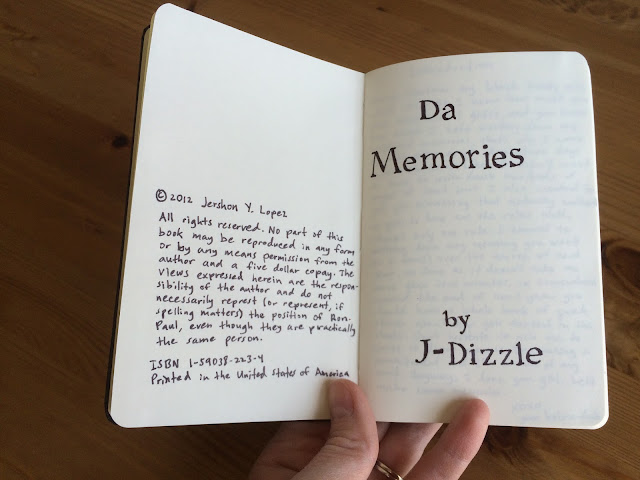 © 2012 Jershon Y. Lopez
All rights reserved. No part of this
book may be reproduced in any form
or by any means permission from the
author and a five dollar copay. The
views expressed herein are the respon-
sibility of the author and do not
necessarily represt (or represent, if
spelling matters) the position of Ron-
Paul, even though they are practically
the same person.
ISBN 1-59038-223-4
Printed in the United States of America
Da
Memories
by
J-Dizzle